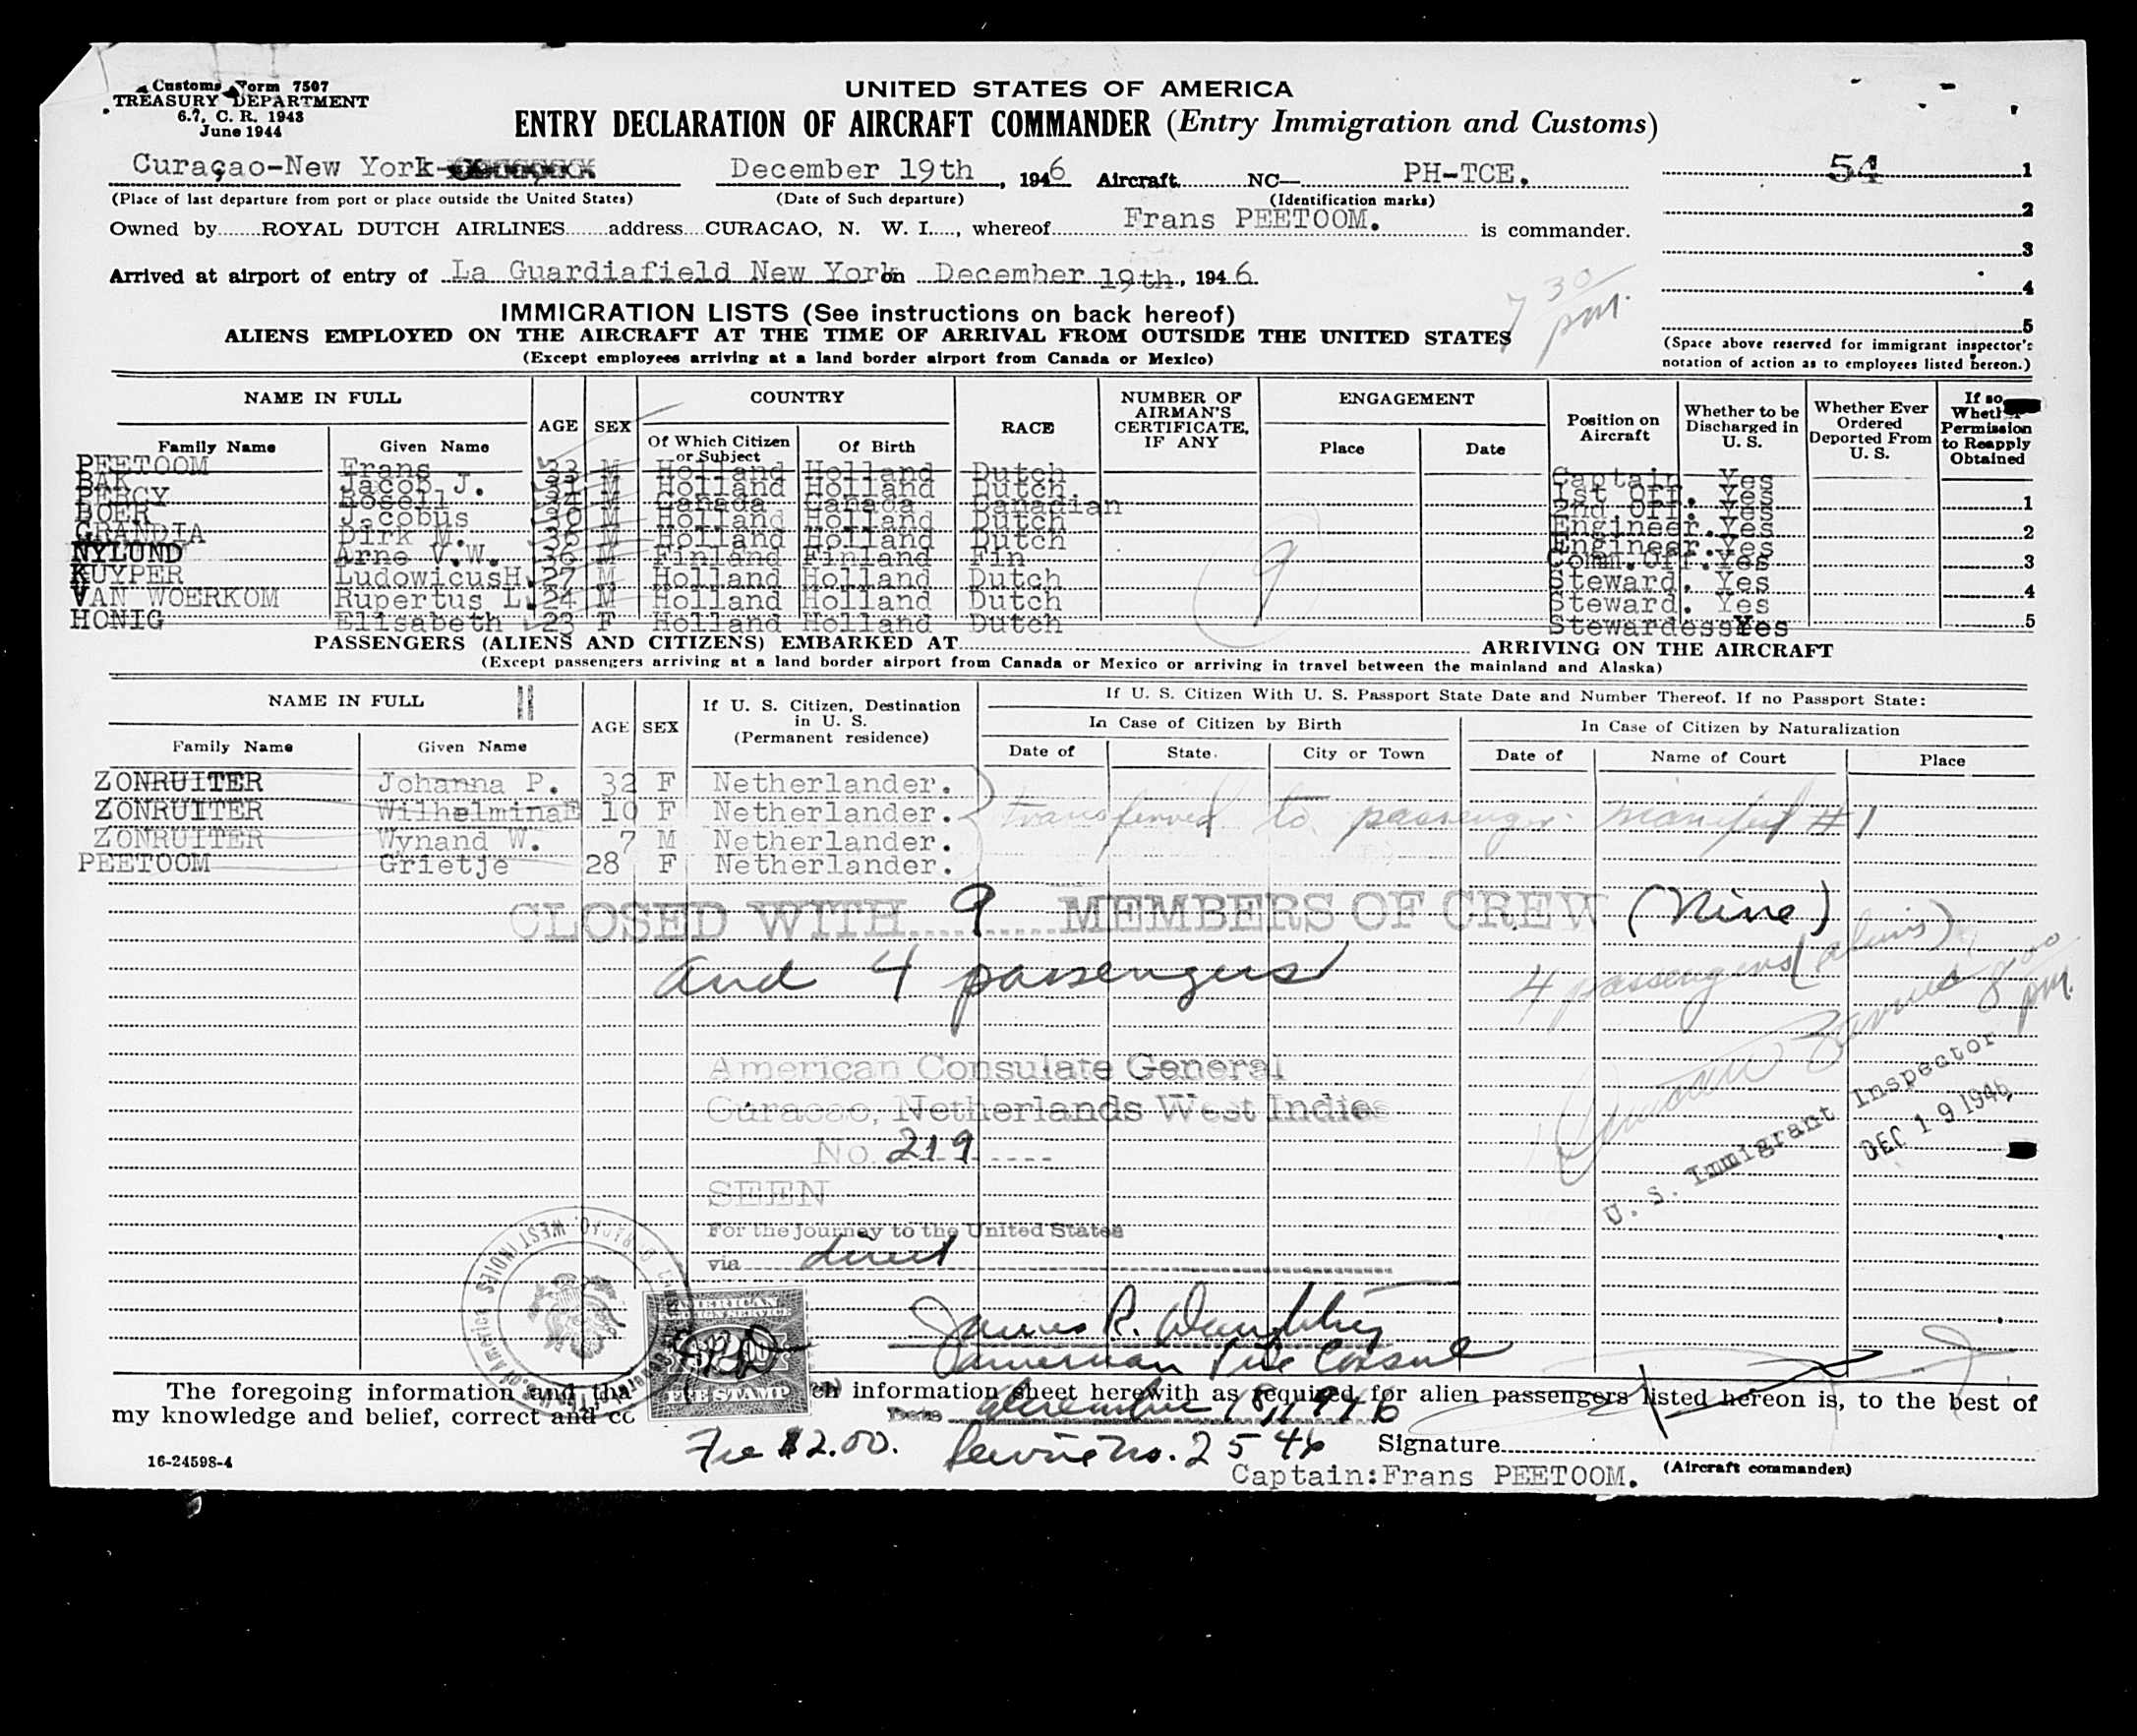 Customs Form 7507
TREASURY DEPARTMENT
6.7, C. R. 1943
June 1944
UNITED STATES OF AMERICA
ENTRY DECLARATION OF AIRCRAFT COMMANDER (Entry Immigration and Customs)
Curaçao-New York- December 19th, 1946 Aircraft NC— PH-TCE. 54 1
(Place of last departure from port or place outside the United States) (Date of Such departure) (Identification marks)
2
Owned by ROYAL DUTCH AIRLINES address CURACAO, N. W. I., whereof Frans PEETOOM. is commander.
3
Arrived at airport of entry of La Guardiafield New York on December 19th, 1946
4
7 30 pm.
5
IMMIGRATION LISTS (See instructions on back hereof)
ALIENS EMPLOYED ON THE AIRCRAFT AT THE TIME OF ARRIVAL FROM OUTSIDE THE UNITED STATES
(Except employees arriving at a land border airport from Canada or Mexico)
(Space above reserved for immigrant inspector's
notation of action as to employees listed hereon.)
NAME IN FULL AGE SEX COUNTRY RACE NUMBER OF AIRMAN'S CERTIFICATE, IF ANY ENGAGEMENT Position on Aircraft Whether to be Discharged in U. S. Whether Ever Ordered Deported From U. S. If so, Whether Permission to Reapply Obtained
Family Name Given Name Of Which Citizen or Subject Of Birth Place Date
PEETOOM Frans 33 M Holland Holland Dutch Captain Yes
BAK Jacob J. M Holland Holland Dutch 1st Off. Yes
PERCY Bosell M Canada Canada Canadian 2nd Off. Yes 1
BOER Jacobus 30 M Holland Holland Dutch Engineer. Yes
GRANDIA Dirk M. 36 M Holland Holland Dutch Engineer. Yes 2
NYLUND Arne V.W. 36 M Finland Finland Fin Comm.Off. Yes 3
KUYPER LudowicusH. 27 M Holland Holland Dutch Steward. Yes
VAN WOERKOM Rupertus L. 24 M Holland Holland Dutch Steward. Yes 4
HONIG Elisabeth 23 F Holland Holland Dutch Stewardess Yes 5
9
PASSENGERS (ALIENS AND CITIZENS) EMBARKED AT ARRIVING ON THE AIRCRAFT
(Except passengers arriving at a land border airport from Canada or Mexico or arriving in travel between the mainland and Alaska)
NAME IN FULL AGE SEX If U. S. Citizen, Destination in U. S. (Permanent residence) If U. S. Citizen With U. S. Passport State Date and Number Thereof. If no Passport State:
In Case of Citizen by Birth In Case of Citizen by Naturalization
Family Name Given Name Date of State City or Town Date of Name of Court Place
ZONRUITER Johanna P. 32 F Netherlander.
ZONRUITER WilhelminaE 10 F Netherlander. transferred to passenger manifest #1
ZONRUITER Wynand W. 7 M Netherlander.
PEETOOM Grietje 28 F Netherlander.
CLOSED WITH 9 MEMBERS OF CREW (Nine)
and 4 passengers
4 passengers (aliens)
8 00 pm.
American Consulate General
Curacao, Netherlands West Indies
No. 219
SEEN
For the journey to the United States
via direct
U. S. Immigrant Inspector
DEC 19 1946
James R. Daughtry
American Vice Consul
AMERICAN
FOREIGN SERVICE
FEE STAMP
The foregoing information and tha ch information sheet herewith as required, for alien passengers listed hereon is, to the best of
my knowledge and belief, correct and co Date December 18, 1946
Fee $2.00. Service No. 2546 Signature
16-24598-4 Captain:Frans PEETOOM. (Aircraft commander)